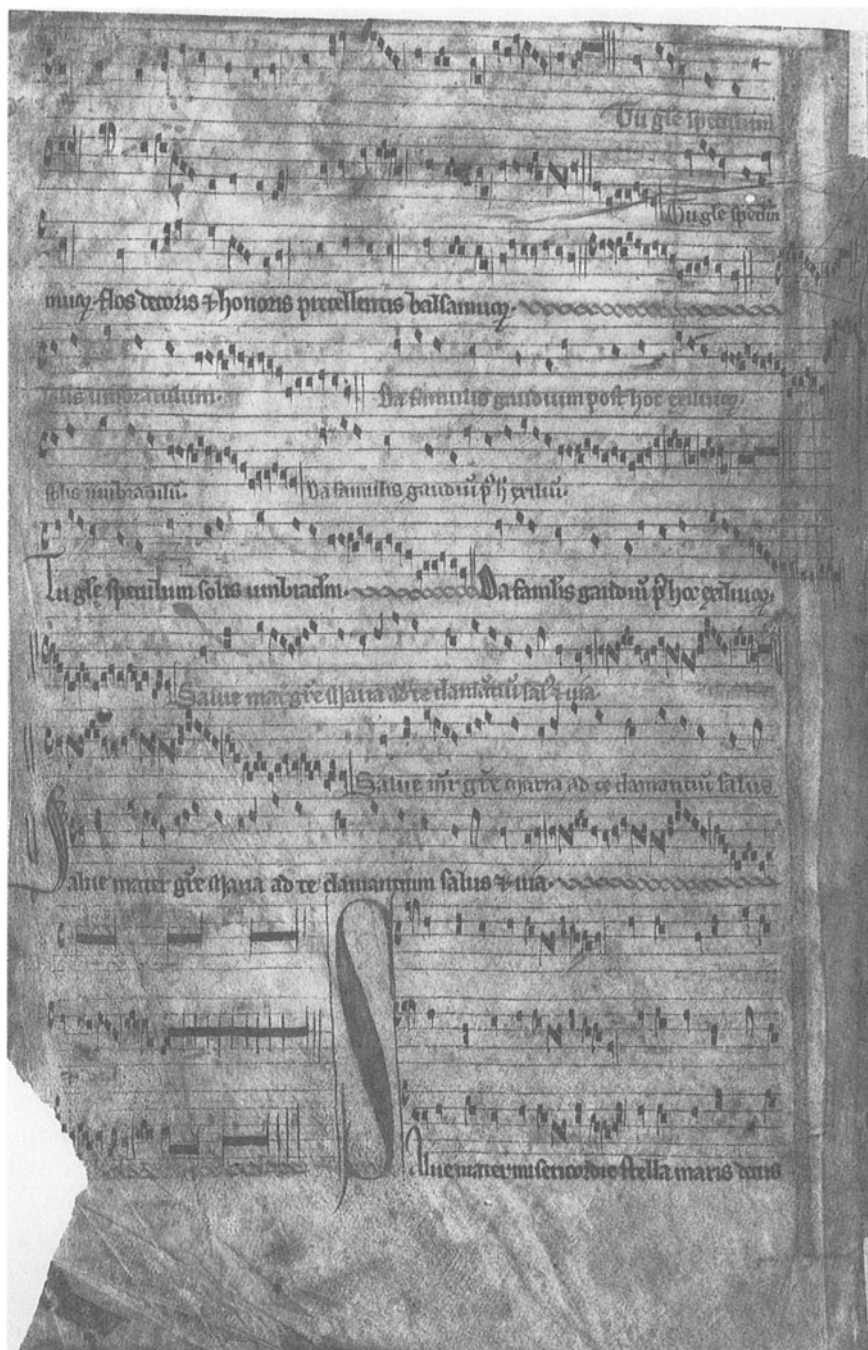 Tu gl̄e speculum
Tu gl̄e speclm̄
flos decoris ⁊ honoris precellentis balsamuꝫ.
solis umbraculum. Da famulis gaudium post hoc exiliuꝫ.
solis umbraculū. Da famulis gaudiū p̄ h̄ exiliū.
Tu gl̄e speculum solis umbraclm̄. Da famlis gaudiū p̄ hoc exiliuꝫ.
Salue mat̄ gr̄e Maria ad te clamantiū sal⁹ ⁊ uia.
Salue mr̄ gr̄e maria ad te clamantiū salus
Salue mater gr̄e Maria ad te clamantium salus ⁊ uia.
Salue mater misericordie stella maris